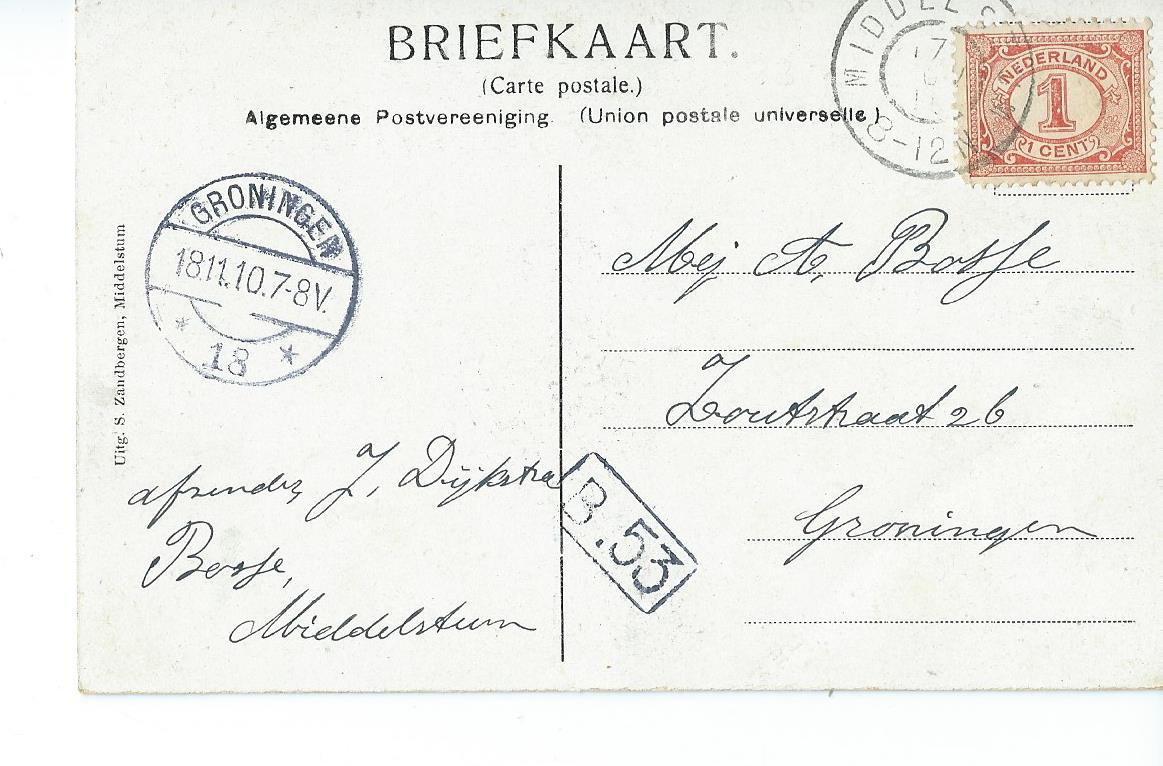 BRIEFKAART.
(Carte postale.)
Algemeene Postvereeniging. (Union postale universelle)
MIDDELS
17
8-12N
NEDERLAND
1
1 CENT
GRONINGEN
18.11.10.7-8V.
* 18 *
Mej A. Bosse
Zoutstraat 26
Groningen
B.53
afzender, J. Dijkstra
Bosse,
Middelstum
Uitg. S. Zandbergen, Middelstum